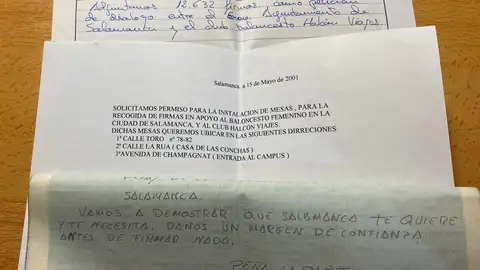 Adjuntamos 12.632 firmas, como petición
de diálogo entre el Excmo Ayuntamiento de
Salamanca y el club baloncesto Halcón Viajes.
Salamanca, a 15 de Mayo de 2001
SOLICITAMOS PERMISO PARA LA INSTALACION DE MESAS , PARA LA
RECOGIDA DE FIRMAS EN APOYO AL BALONCESTO FEMENINO EN LA
CIUDAD DE SALAMANCA, Y AL CLUB HALCON VIAJES.
DICHAS MESAS QUEREMOS UBICAR EN LAS SIGUIENTES DIRRECIONES:
1ª CALLE TORO nº 78-82
2ª CALLE LA RUA ( CASA DE LAS CONCHAS )
3ªAVENIDA DE CHAMPAGNAT ( ENTRADA AL CAMPUS )
SALAMANCA
VAMOS A DEMOSTRAR QUE SALAMANCA TE QUIERE
Y TE NECESITA. DANOS UN MARGEN DE CONFIANZA
ANTES DE FIRMAR NADA.
PEÑA LA